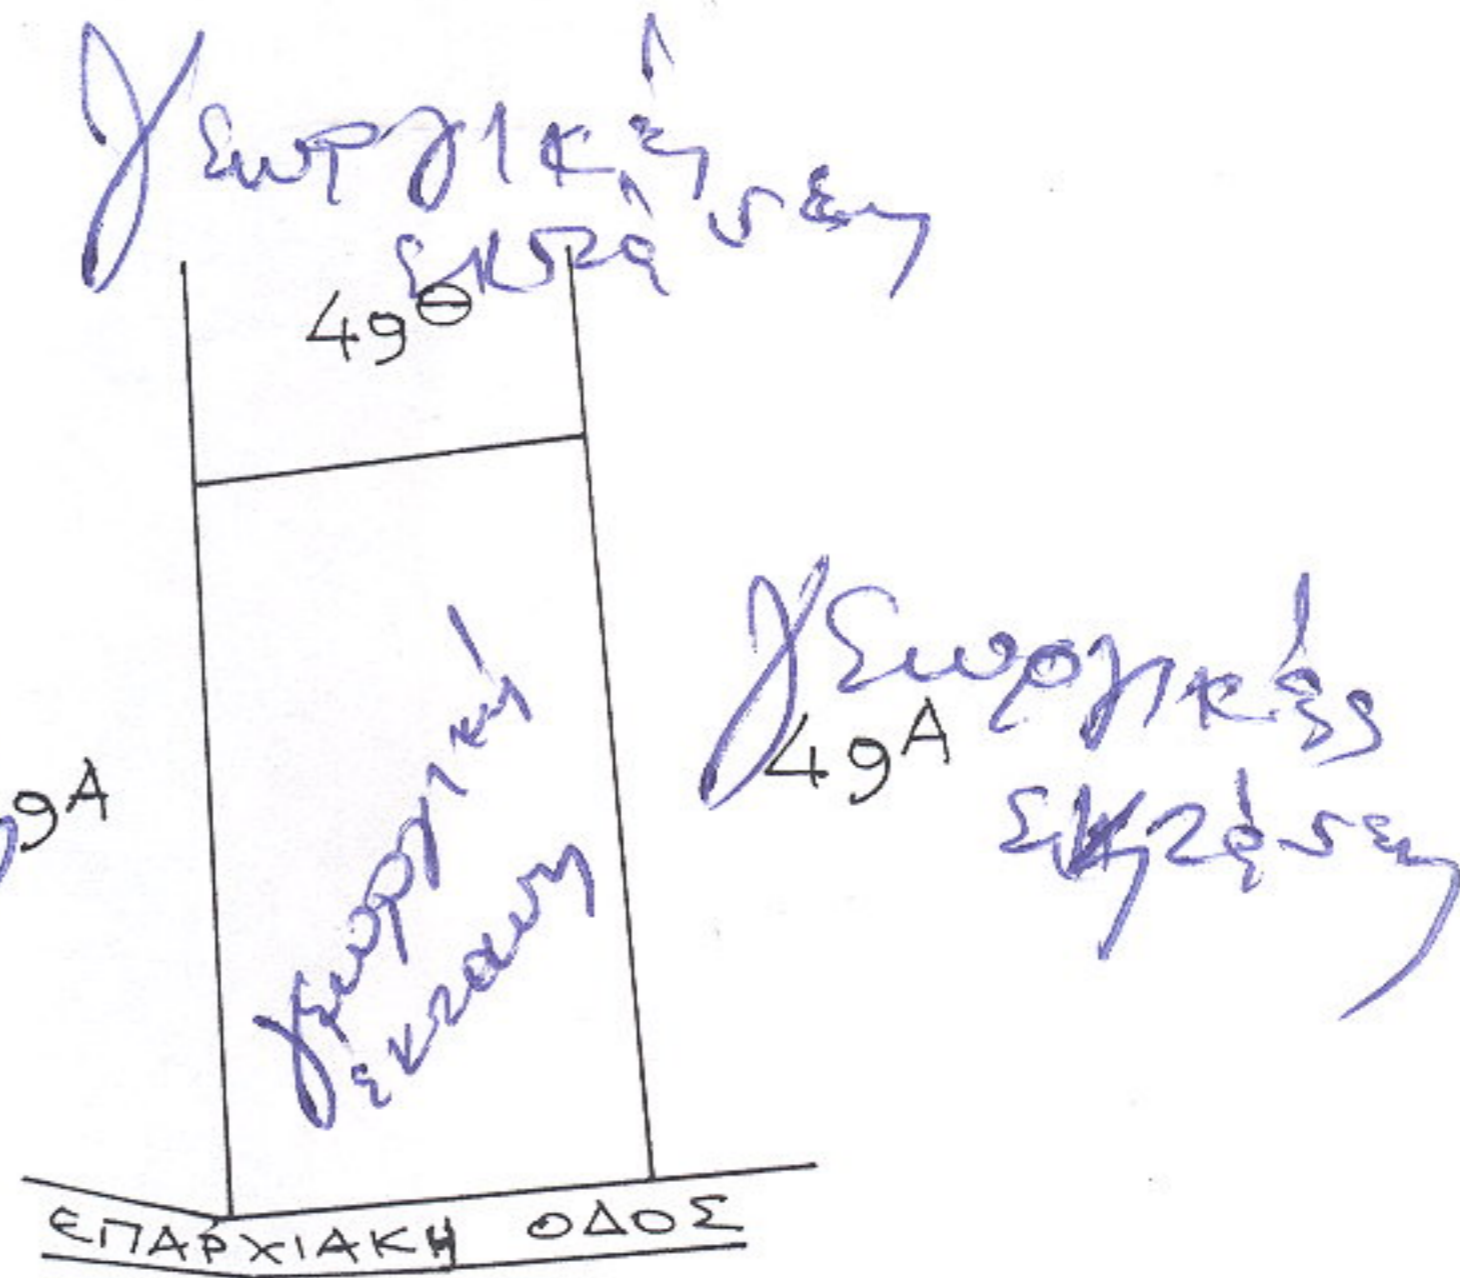 γεωργική
εκτάσεη
49Θ
γεωργική
εκταση
9Α
γεωργικές
49Α
εκτάσεη
ΕΠΑΡΧΙΑΚΗ ΟΔΟΣ